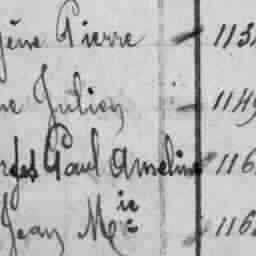 gène Pierre - 113
ne Julien - 1149
rges Paul Anselme 116
Jean Mie 116